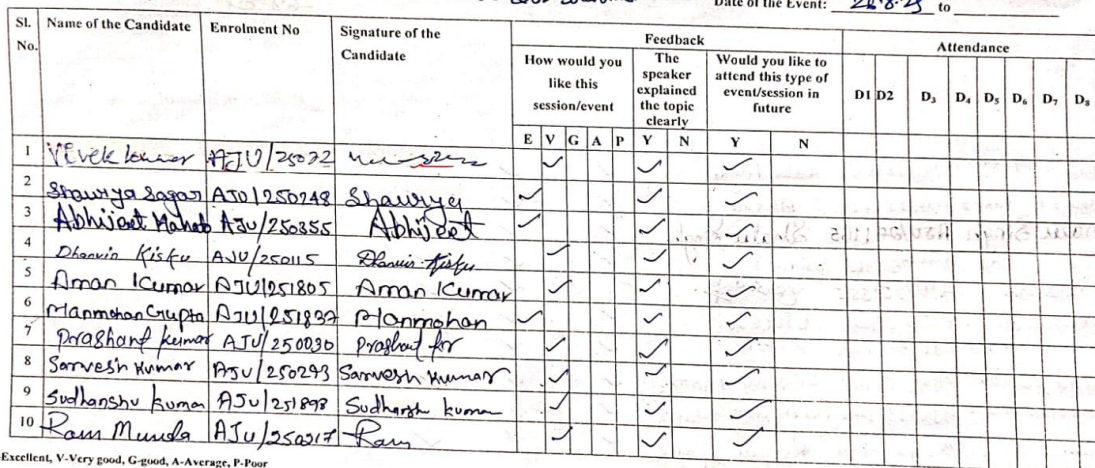 Date of the Event: 26.8.25 to
Sl. No. Name of the Candidate Enrolment No Signature of the Candidate Feedback Attendance
How would you like this session/event The speaker explained the topic clearly Would you like to attend this type of event/session in future D1 D2 D3 D4 D5 D6 D7 D8
E V G A P Y N Y N
1 Vivek kumar AJU/25072
2 Shaurya Sagar AJU/250248 Shaurya
3 Abhijeet Mahato AJU/250355 Abhijeet
4 Dhanvin Kisku AJU/250115 Dhanvin Kisku
5 Aman Kumar AJU/251805 Aman Kumar
6 Manmohan Gupta AJU/251837 Manmohan
7 Prashant kumar AJU/250030 Prashant kr
8 Sarvesh Kumar AJU/250293 Sarvesh Kumar
9 Sudhanshu kumar AJU/251898 Sudhanshu kumar
10 Ram Munda AJU/250217 Ram
Excellent, V-Very good, G-good, A-Average, P-Poor